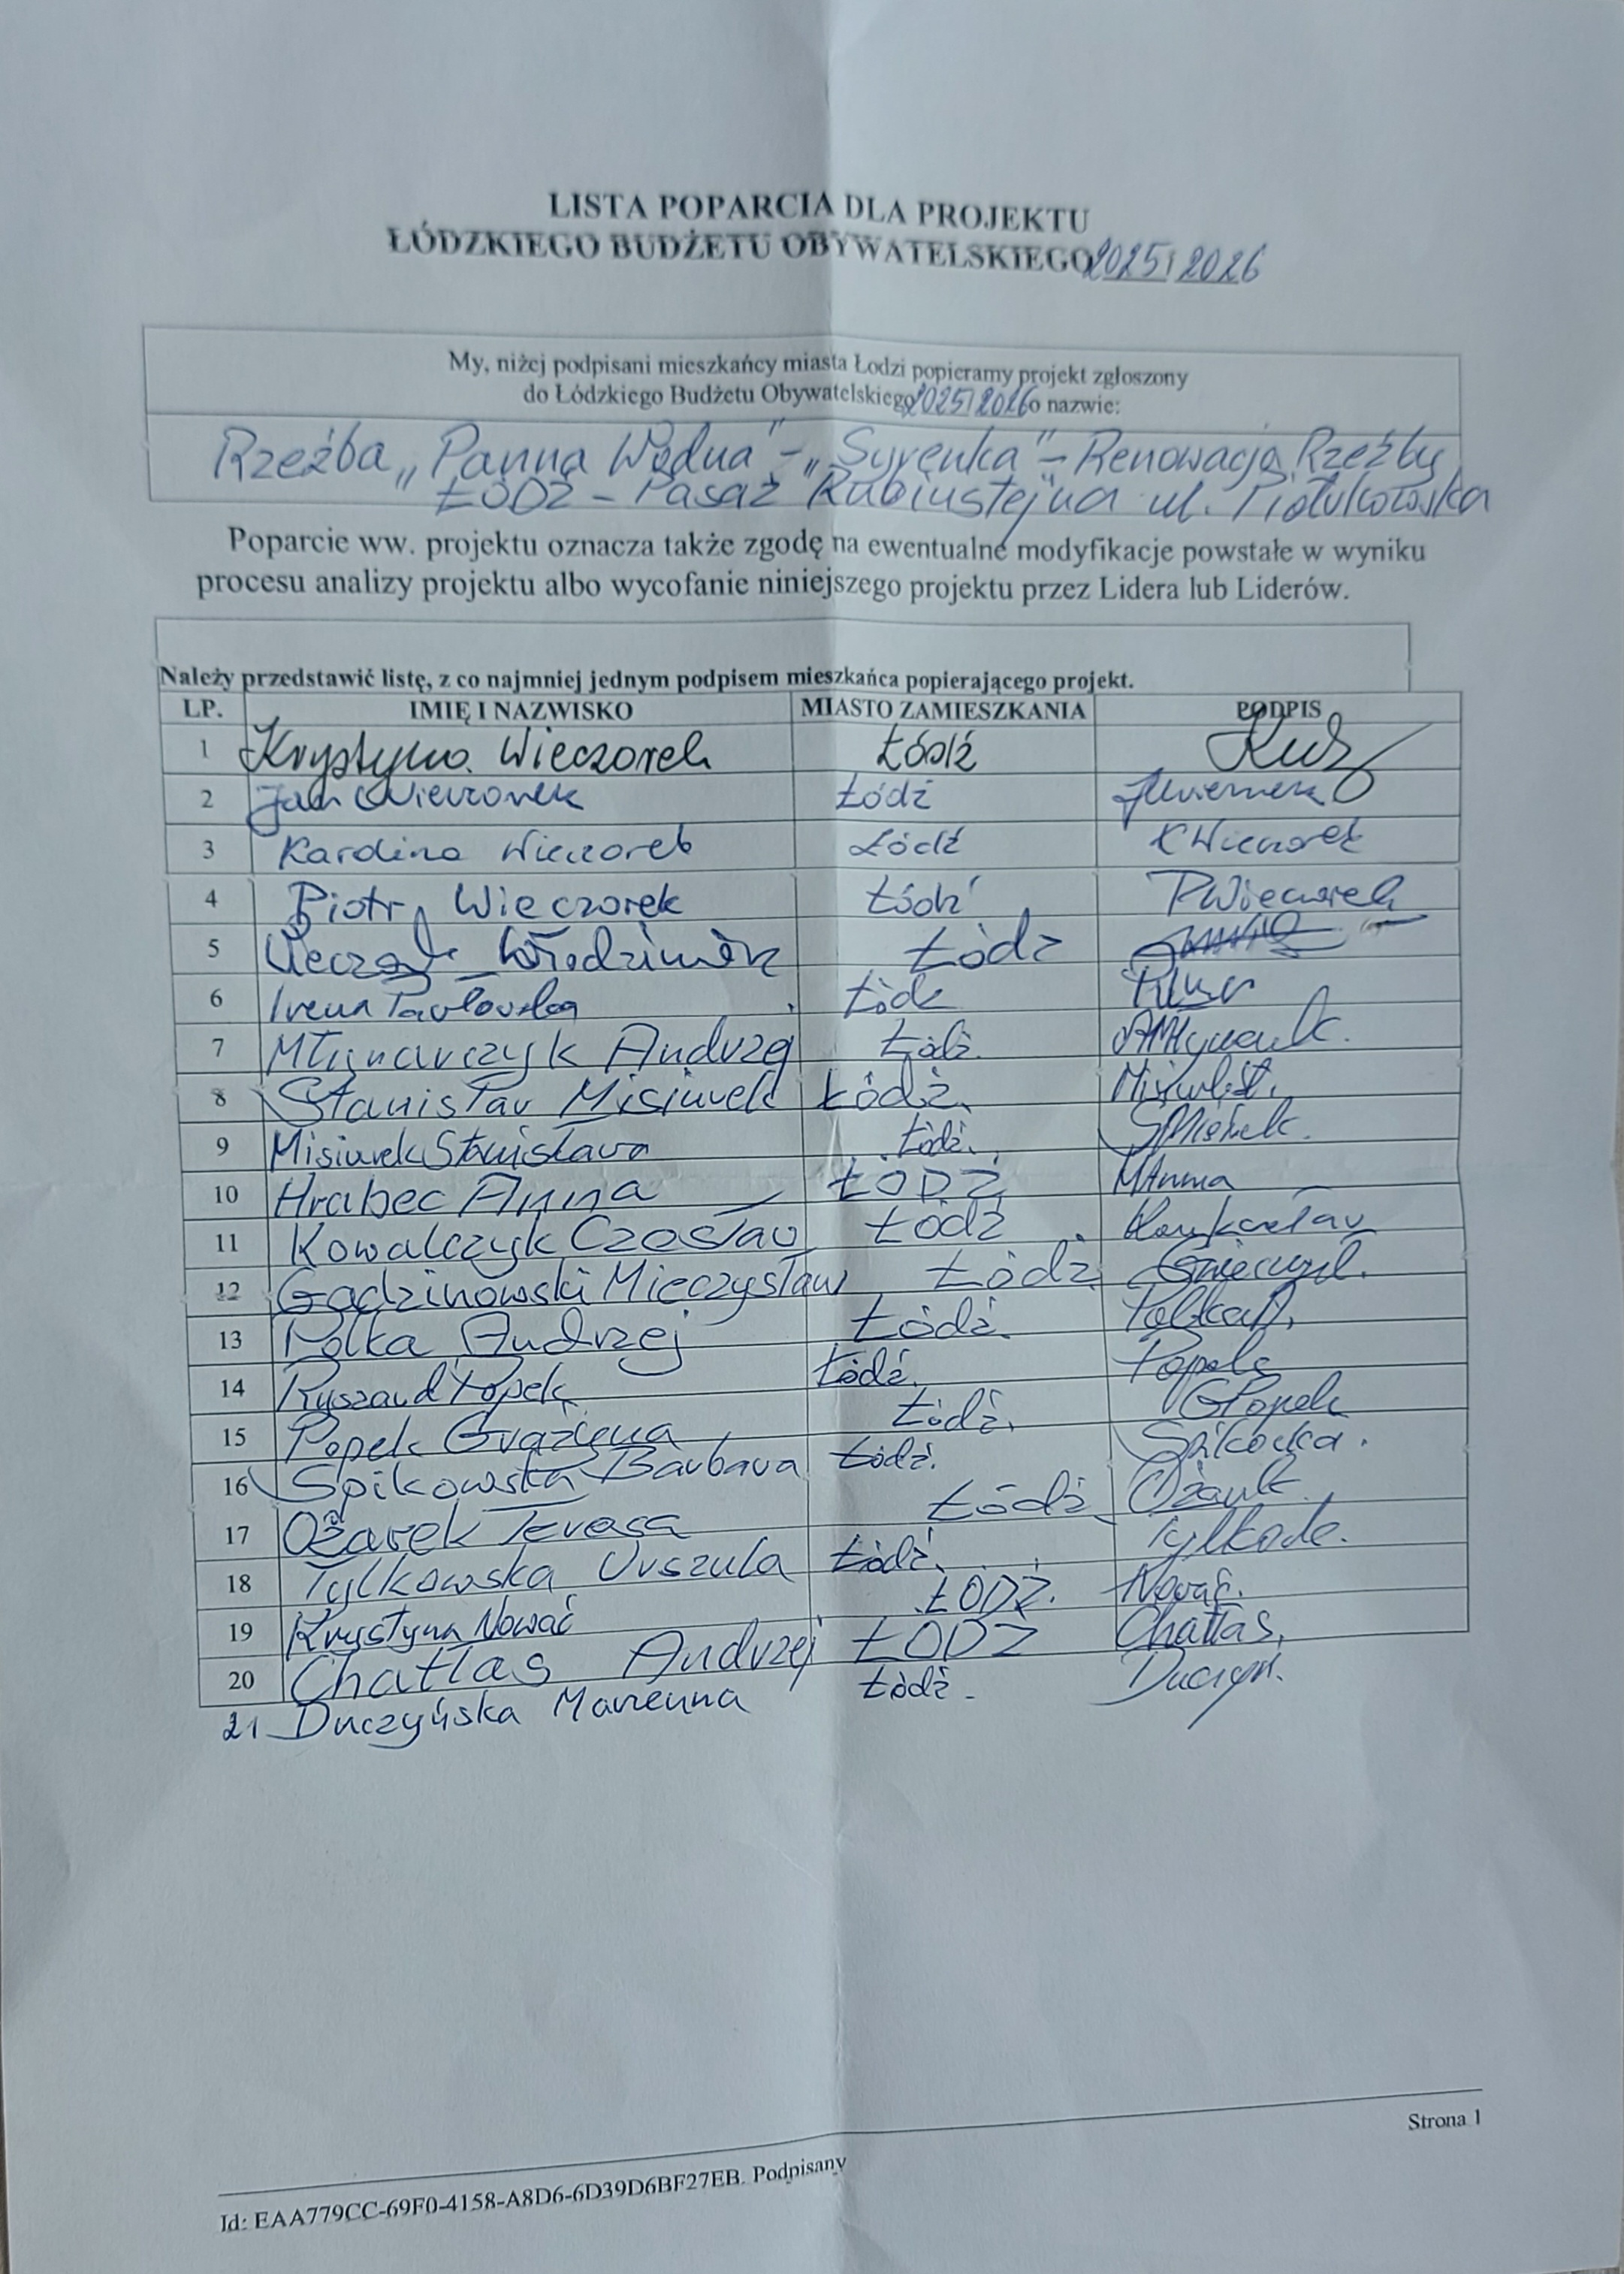 LISTA POPARCIA DLA PROJEKTU
ŁÓDZKIEGO BUDŻETU OBYWATELSKIEGO 2025/2026
My, niżej podpisani mieszkańcy miasta Łodzi popieramy projekt zgłoszony
do Łódzkiego Budżetu Obywatelskiego 2025/2026 o nazwie:
Rzeźba „Panna Wodna" - „Syrenka" - Renowacja Rzeźby
ŁÓDŹ - Pasaż Rubinstejna ul. Piotrkowska
Poparcie ww. projektu oznacza także zgodę na ewentualne modyfikacje powstałe w wyniku
procesu analizy projektu albo wycofanie niniejszego projektu przez Lidera lub Liderów.
Należy przedstawić listę, z co najmniej jednym podpisem mieszkańca popierającego projekt.
LP. IMIĘ I NAZWISKO MIASTO ZAMIESZKANIA PODPIS
1 Krystyna Wieczorek Łódź
2 Jan Wieczorek Łódź
3 Karolina Wieczorek Łódź K Wieczorek
4 Piotr Wieczorek Łódź P Wieczorek
5 Włodzimierz Łódź
6 Irena Pawłowska Łódź
7 Młynarczyk Andrzej Łódź
8 Stanisław Misiurek Łódź.
9 Misiurek Stanisława Łódź.
10 Hrabec Anna ŁÓDŹ
11 Kowalczyk Czesław Łódź
12 Gądzinowski Mieczysław Łódź
13 Polka Andrzej Łódź.
14 Ryszard Popek Łódź.
15 Popek Grażyna Łódź. G Popek
16 Spikowska Barbara Łódź.
17 Ożarek Teresa Łódź
18 Tylkowska Urszula Łódź.
19 Krystyna Nować ŁÓDŹ. Nować.
20 Chatłas Andrzej ŁÓDŹ Chatłas.
21 Duczyńska Marzenna Łódź.
Strona 1
Id: EAA779CC-69F0-4158-A8D6-6D39D6BF27EB. Podpisany